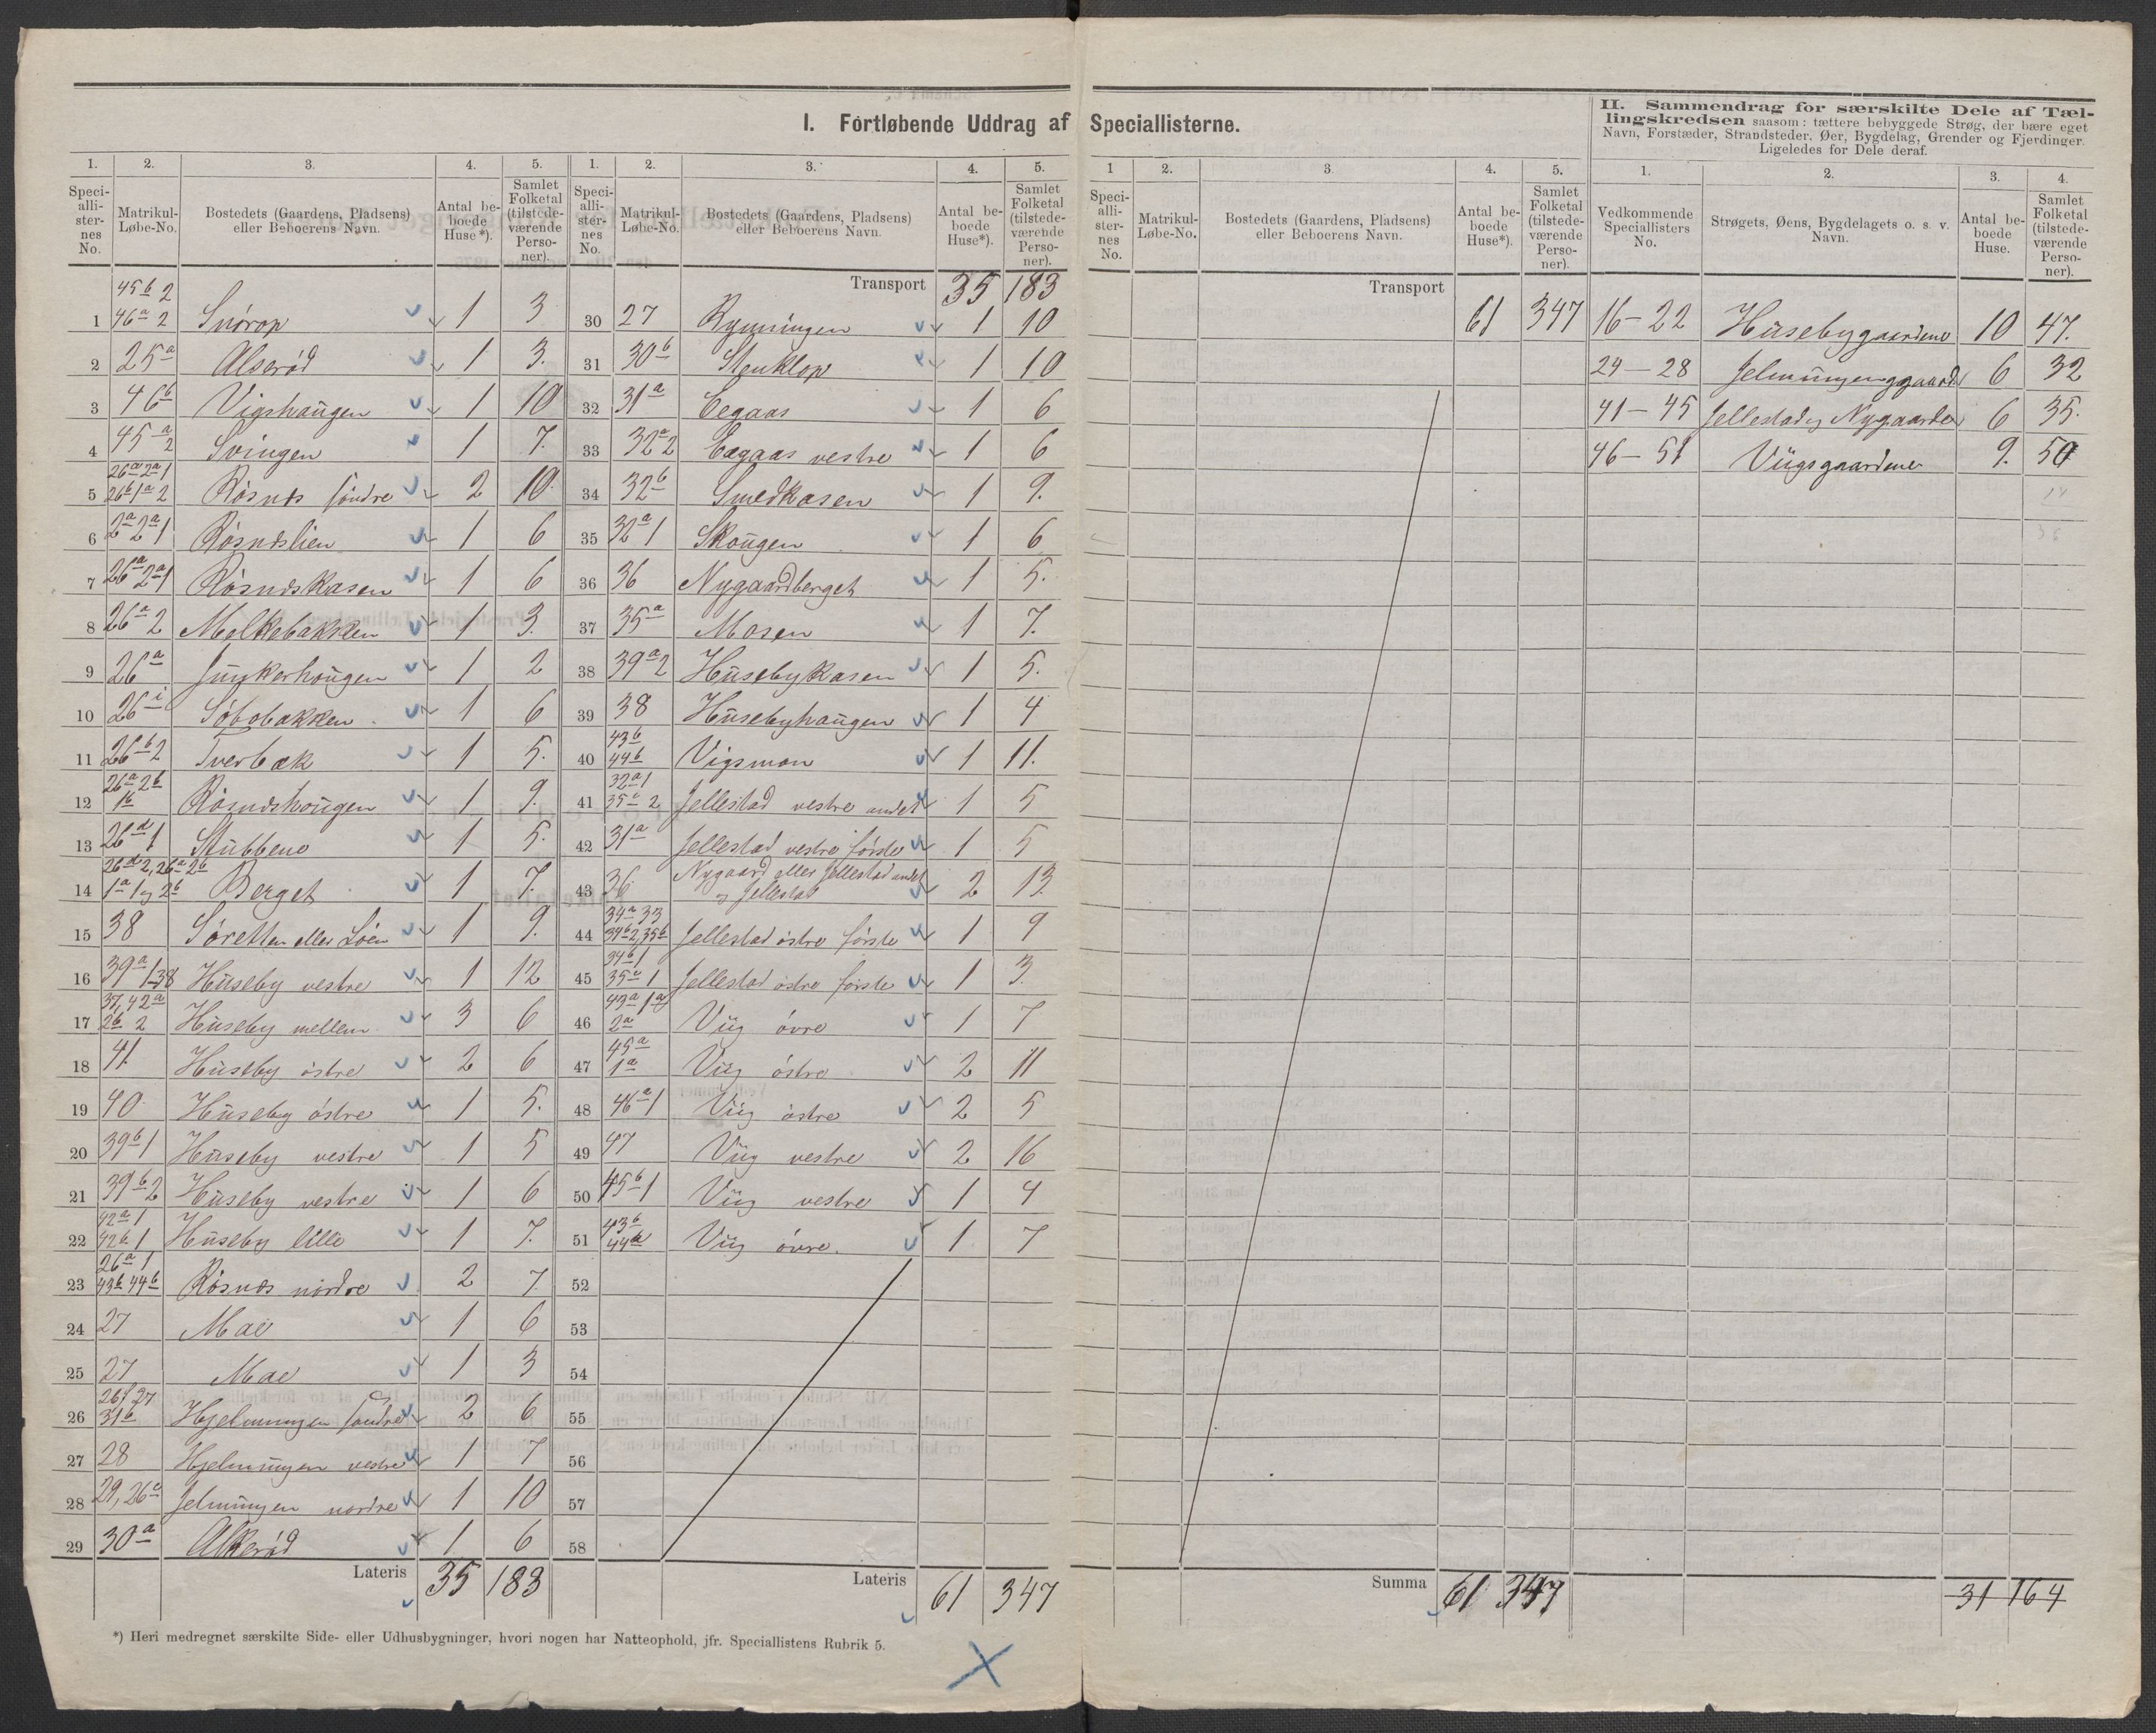 I. Fortløbende Uddrag af Speciallisterne.
II. Sammendrag for særskilte Dele af Tæl-
lingskredsen saasom: tættere bebyggede Strøg, der bære eget
Navn, Forstæder, Strandsteder, Øer, Bygdelag, Grender og Fjerdinger.
Ligeledes for Dele deraf.
1. 2. 3. 4. 5. 1. 2. 3. 4. 5.
Speci-alli-ster-nes No. Matrikul-Løbe-No. Bostedets (Gaardens, Pladsens) eller Beboerens Navn. Antal be-boede Huse*). Samlet Folketal (tilstede-værende Perso-ner).
Speci-alli-ster-nes No. Matrikul-Løbe-No. Bostedets (Gaardens, Pladsens) eller Beboerens Navn. Antal be-boede Huse*). Samlet Folketal (tilstede-værende Perso-ner).
45b 2
1 46a 2 Snórop 1 3
2 25a Alserød 1 3.
3 46b Vigshaugen 1 10
4 45a 2 Svingen 1 7.
26a 2a 1
5 26b 1a 2 Rósnes söndre 2 10
6 2a 2a 1 Rósneslien 1 6
7 26a 2a 1 Rósneskasen 1 6
8 26a 2 Melkebakken 1 3.
9 26a Junkerhougen 1 2
10 26i Sóbobakken 1 6
11 26b 2 Tverbæk 1 5.
26a 2b
12 1b Rósneshougen 1 9.
13 26d 1 Stubbene 1 5.
26d 2, 26a 2b
14 1a 1 og 2b Berget 1 7.
15 38 Sóretten eller Lóen 1 9.
16 39a 1 38 Huseby vestre 1 12
37, 42a
17 2b 2 Huseby mellem 3 6
18 41. Huseby óstre 2 6
19 40 Huseby óstre 1 5.
20 39b 1 Huseby vestre 1 5
21 39b 2 Huseby vestre 1 6
42a 1
22 42b 1 Huseby lille 1 7.
26a 1
23 43b 44b Rósnes nordre 2 7.
24 27 Mae 1 6
25 27 Mae 1 3
26f 27
26 31b Hjelmungen söndre 2 6
27 28 Hjelmungen vestre 1 7
28 29, 26e Jelmungen nordre 1 10
29 30a Alkerød 1 6
Lateris 35 183
Transport 35 183
30 27 Rymningen 1 10
31 30b Stenklop 1 10
32 31a Eegaas 1 6
33 32a 2 Eegaas vestre 1 6
34 32b Smedkasen 1 9.
35 32a 1 Skougen 1 6
36 36 Nygaardberget 1 5.
37 35a Mosen 1 7.
38 39a 2 Husebykasen 1 5.
39 38 Husebyhaugen 1 4
43b
40 44b Vigsmon 1 11.
32a 1
41 35a 2 Jellestad vestre andet 1 5
42 31a Jellestad vestre første 1 5
43 36 Nygaard eller Jellestad andet
og Jellestad 2 13.
34a 33
44 34b 2, 35b Jellestad óstre første 1 9
34b 1
45 35a 1 Jellestad óstre første 1 3.
43a 1a
46 2a Viig óvre 1 7
45a
47 1a Viig óstre 2 11
48 46a 1 Viig óstre 2 5
49 47 Viig vestre 2 16
50 45b 1 Viig vestre 1 4
43b
51 44a Viig óvre. 1 7
52
53
54
55
56
57
58
Lateris 61 347
*) Heri medregnet særskilte Side- eller Udhusbygninger, hvori nogen har Natteophold, jfr. Speciallistens Rubrik 5.
1 2. 3. 4. 5. 1. 2. 3. 4.
Speci-alli-ster-nes No. Matrikul-Løbe-No. Bostedets (Gaardens, Pladsens) eller Beboerens Navn. Antal be-boede Huse*). Samlet Folketal (tilstede-værende Perso-ner).
Vedkommende Speciallisters No. Strøgets, Øens, Bygdelagets o. s. v. Navn. Antal be-boede Huse. Samlet Folketal (tilstede-værende Perso-ner).
Transport 61 347
Summa 61 347
16 - 22 Husebygaardene 10 47.
24 - 28 Jelmungengaard 6 32
41 - 45 Jellestad og Nygaarden 6 35.
46 - 51 Viigsgaardene 9. 50
31 164